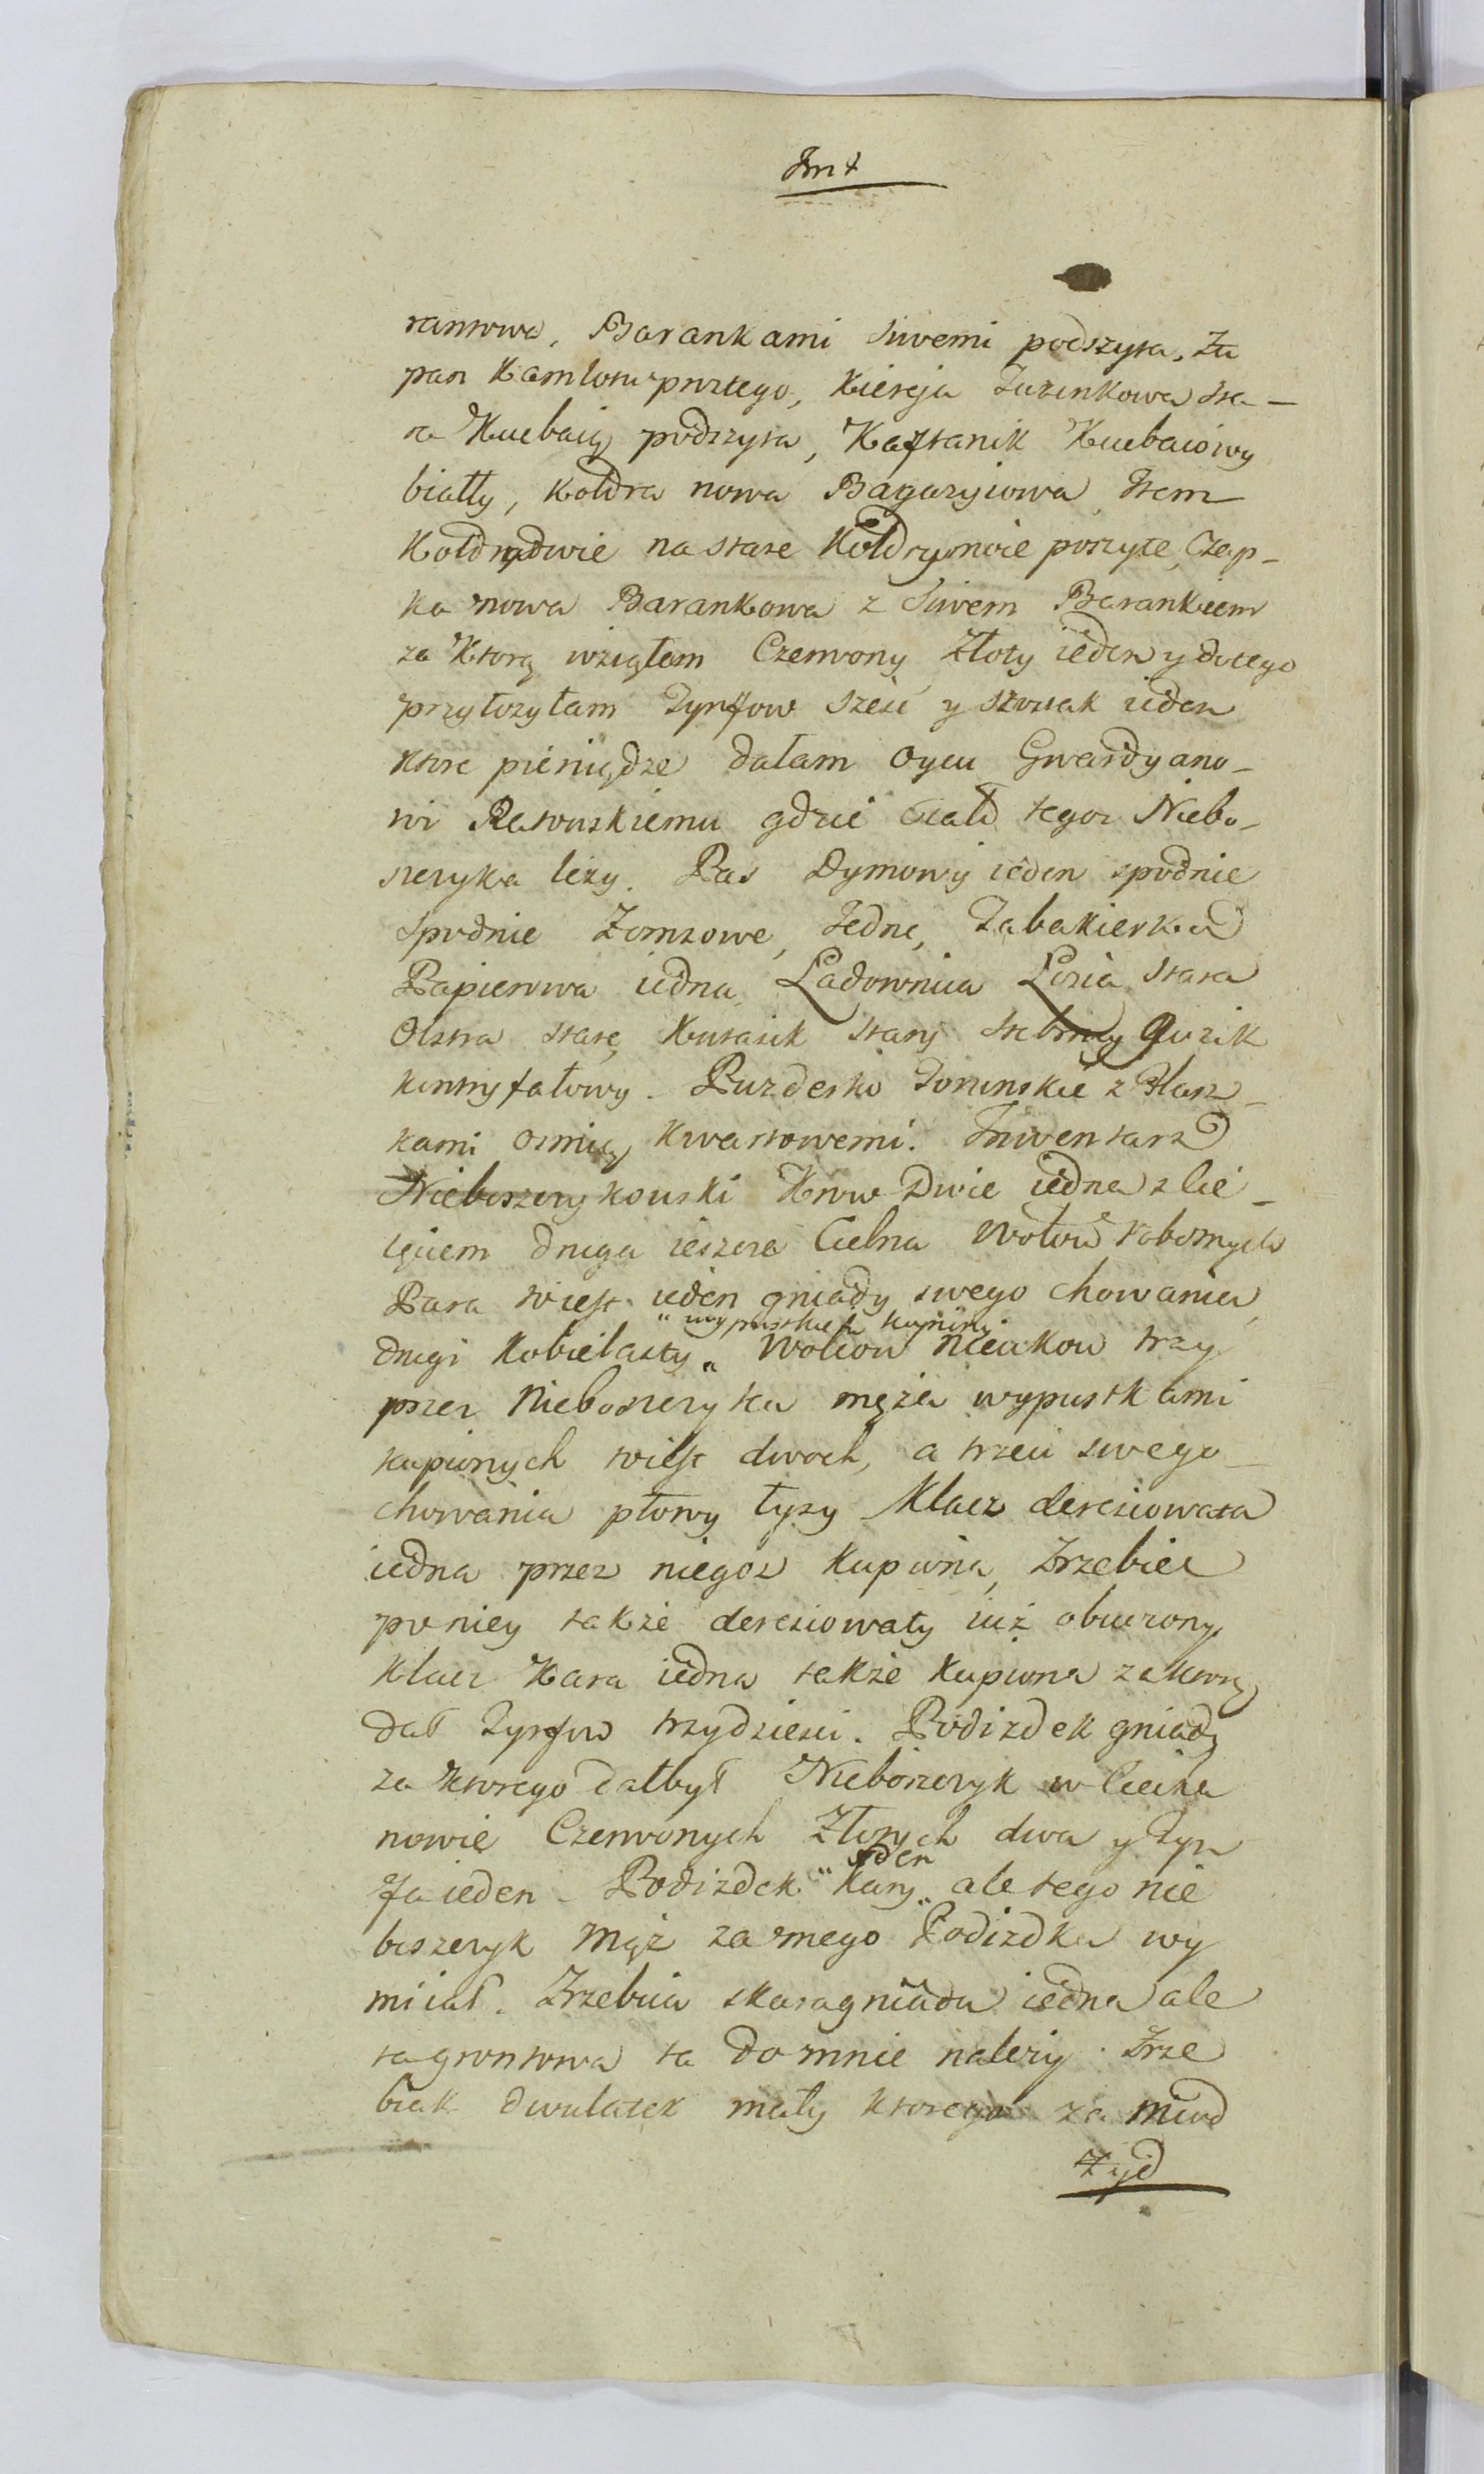 rantowa, Barankami siwemi podszyta, Zu
pan Kamlotu prostego, Kiereja Zuzinkowa sta-
ra Kuebaią podszyta, Kaftanik Kuebaiowy
biały, kołdra nowa Bagazyiowa Item
Kołdry dwie na stare Kołdry moie poszyte, Czap-
ka nowa Barankowa z Siwem Barankiem
za Ktorą wziąłem Czerwony Złoty ieden y do tego
przyłożyłam Tynfow sześć y szostak ieden
ktore pieniądze dałam oycu Gwardyano-
wi Ratouskiemu gdzie Ciało tegoz Niebo-
szczyka leży. Pas Dymowy ieden spodnie
spodnie Zamszowe, Jedne, Tabakierka
Papierowa iedna, Ładownica Łosia stara
Olstra stare, Kutasik stary srebrny Guzik
kontryfałowy. Puzderko Torunskie z Flasz-
kami osmią Kwartowemi. Inwentarz
Nieboszczykouski Krow Dwie iedna z Cie-
lęciem druga ieszcze Cielna Wołow robotnych
Para to iest ieden gniady swego chowania
" wypustkiem kupiony
drugi Kobielasty " Wolcow nieukow trzy
przez Nieboszczyka męża wypustkami
kupionych to iest dwoch, a trzeci swego
chowania płowy łysy Klacz dereszowata
iedna przez niegoz Kupiona, Zrzebiec
po niey także dereszowaty iuż oburzony.
Klacz Kara iedna także Kupiona za ktorą
dał Tynfow trzydzieści. Podizdek gniady
za Ktorego dał był Nieboszczyk w Ciecha
nowie Czerwonych Złotych dwa y Tyn
ieden
fa ieden - Podizdek " Kary " ale tego nie
boszczyk Mąż za mego Podizdka wy
mieiał. Zrzebica skarogniada iedna ale
ta grontowa ta do mnie należy. Zrze
biak dwulatek mały ktorego za miod
Zyd